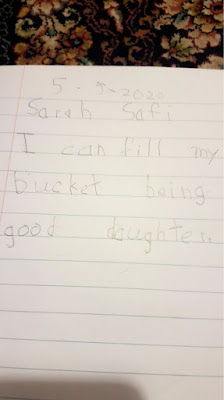 5 - 5-2020
Sarah Safi
I can fill my
bucket being
good daughter.